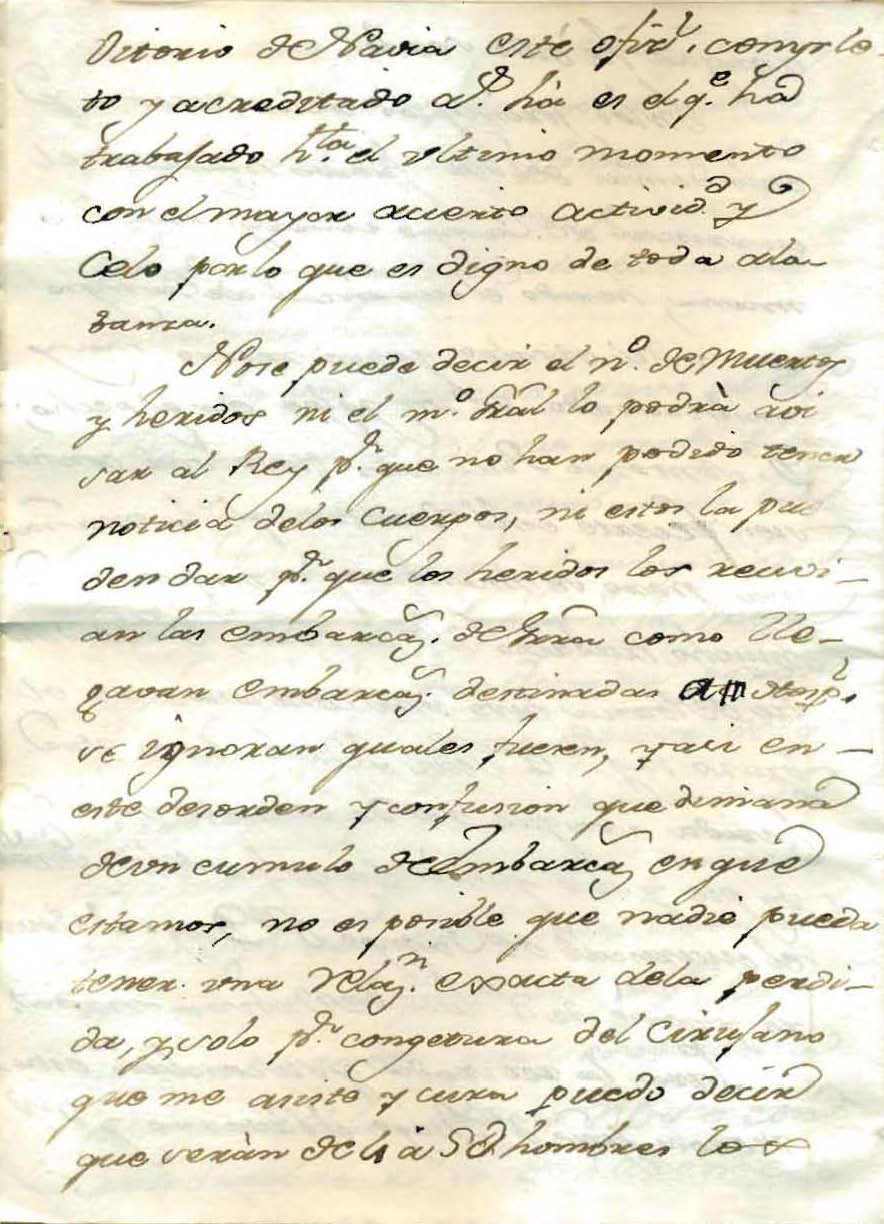 Vitorio de Navia este ofizl. comple-
to y acreditado ha es el q.e ha
trabajado h.ta el ultimo momento
con el mayor acierto activid.d y
Celo por lo que es digno de toda ala-
banza.
No se puede decir el n.o de Muertos
y heridos ni el m.o Gral lo podrà avi
sar al Rey p.r que no han podido tener
noticia de los Cuerpos, ni estos la pue
den dar p.r que los heridos los recivi-
an las embarcas. de Grra como lle-
gavan embarcas. destinadas a
se ignoran quales fueren, y asi en-
este desorden y confusion que dimana
de un cumulo de Embarcas en que
estamos, no es posible que nadie pueda
tener una Relaz.n exacta de la perdi-
da, y solo p.r congetura del Cirujano
que me asiste y cura puedo decir
que seràn de 4 à 5 hombres los